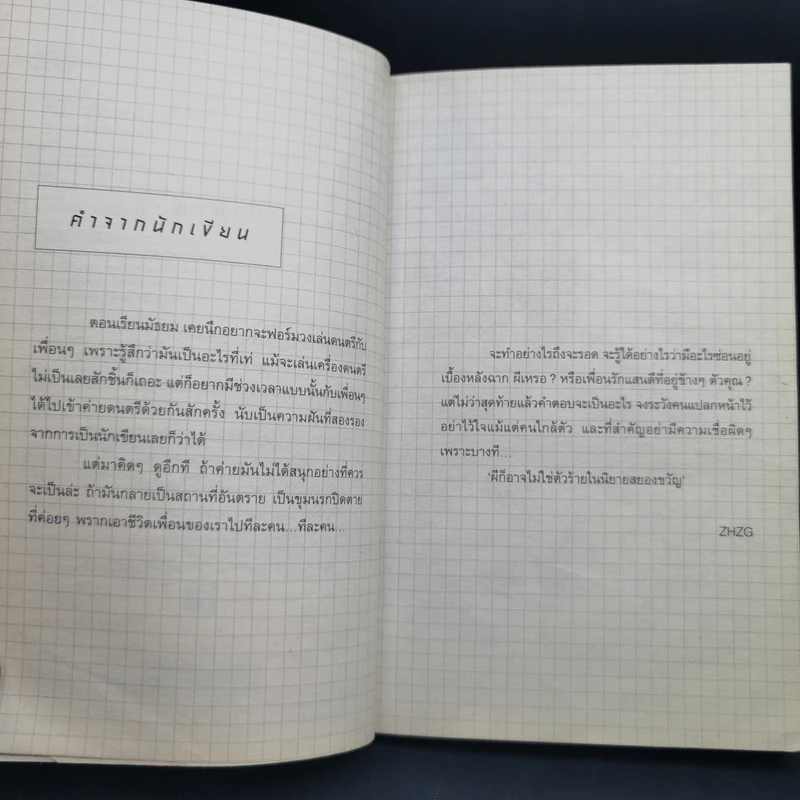 คำจากนักเขียน
ตอนเรียนมัธยม เคยนึกอยากจะฟอร์มวงเล่นดนตรีกับ
เพื่อนๆ เพราะรู้สึกว่ามันเป็นอะไรที่เท่ แม้จะเล่นเครื่องดนตรี
ไม่เป็นเลยสักชิ้นก็เถอะ แต่ก็อยากมีช่วงเวลาแบบนั้นกับเพื่อนๆ
ได้ไปเข้าค่ายดนตรีด้วยกันสักครั้ง นับเป็นความฝันที่สองรอง
จากการเป็นนักเขียนเลยก็ว่าได้
แต่มาคิดๆ ดูอีกที ถ้าค่ายมันไม่ได้สนุกอย่างที่ควร
จะเป็นล่ะ ถ้ามันกลายเป็นสถานที่อันตราย เป็นขุมนรกปิดตาย
ที่ค่อยๆ พรากเอาชีวิตเพื่อนของเราไปทีละคน...ทีละคน...
จะทำอย่างไรถึงจะรอด จะรู้ได้อย่างไรว่ามีอะไรซ่อนอยู่
เบื้องหลังฉาก ผีเหรอ ? หรือเพื่อนรักแสนดีที่อยู่ข้างๆ ตัวคุณ ?
แต่ไม่ว่าสุดท้ายแล้วคำตอบจะเป็นอะไร จงระวังคนแปลกหน้าไว้
อย่าไว้ใจแม้แต่คนใกล้ตัว และที่สำคัญอย่ามีความเชื่อผิดๆ
เพราะบางที...
'ผีก็อาจไม่ใช่ตัวร้ายในนิยายสยองขวัญ'
ZHZG